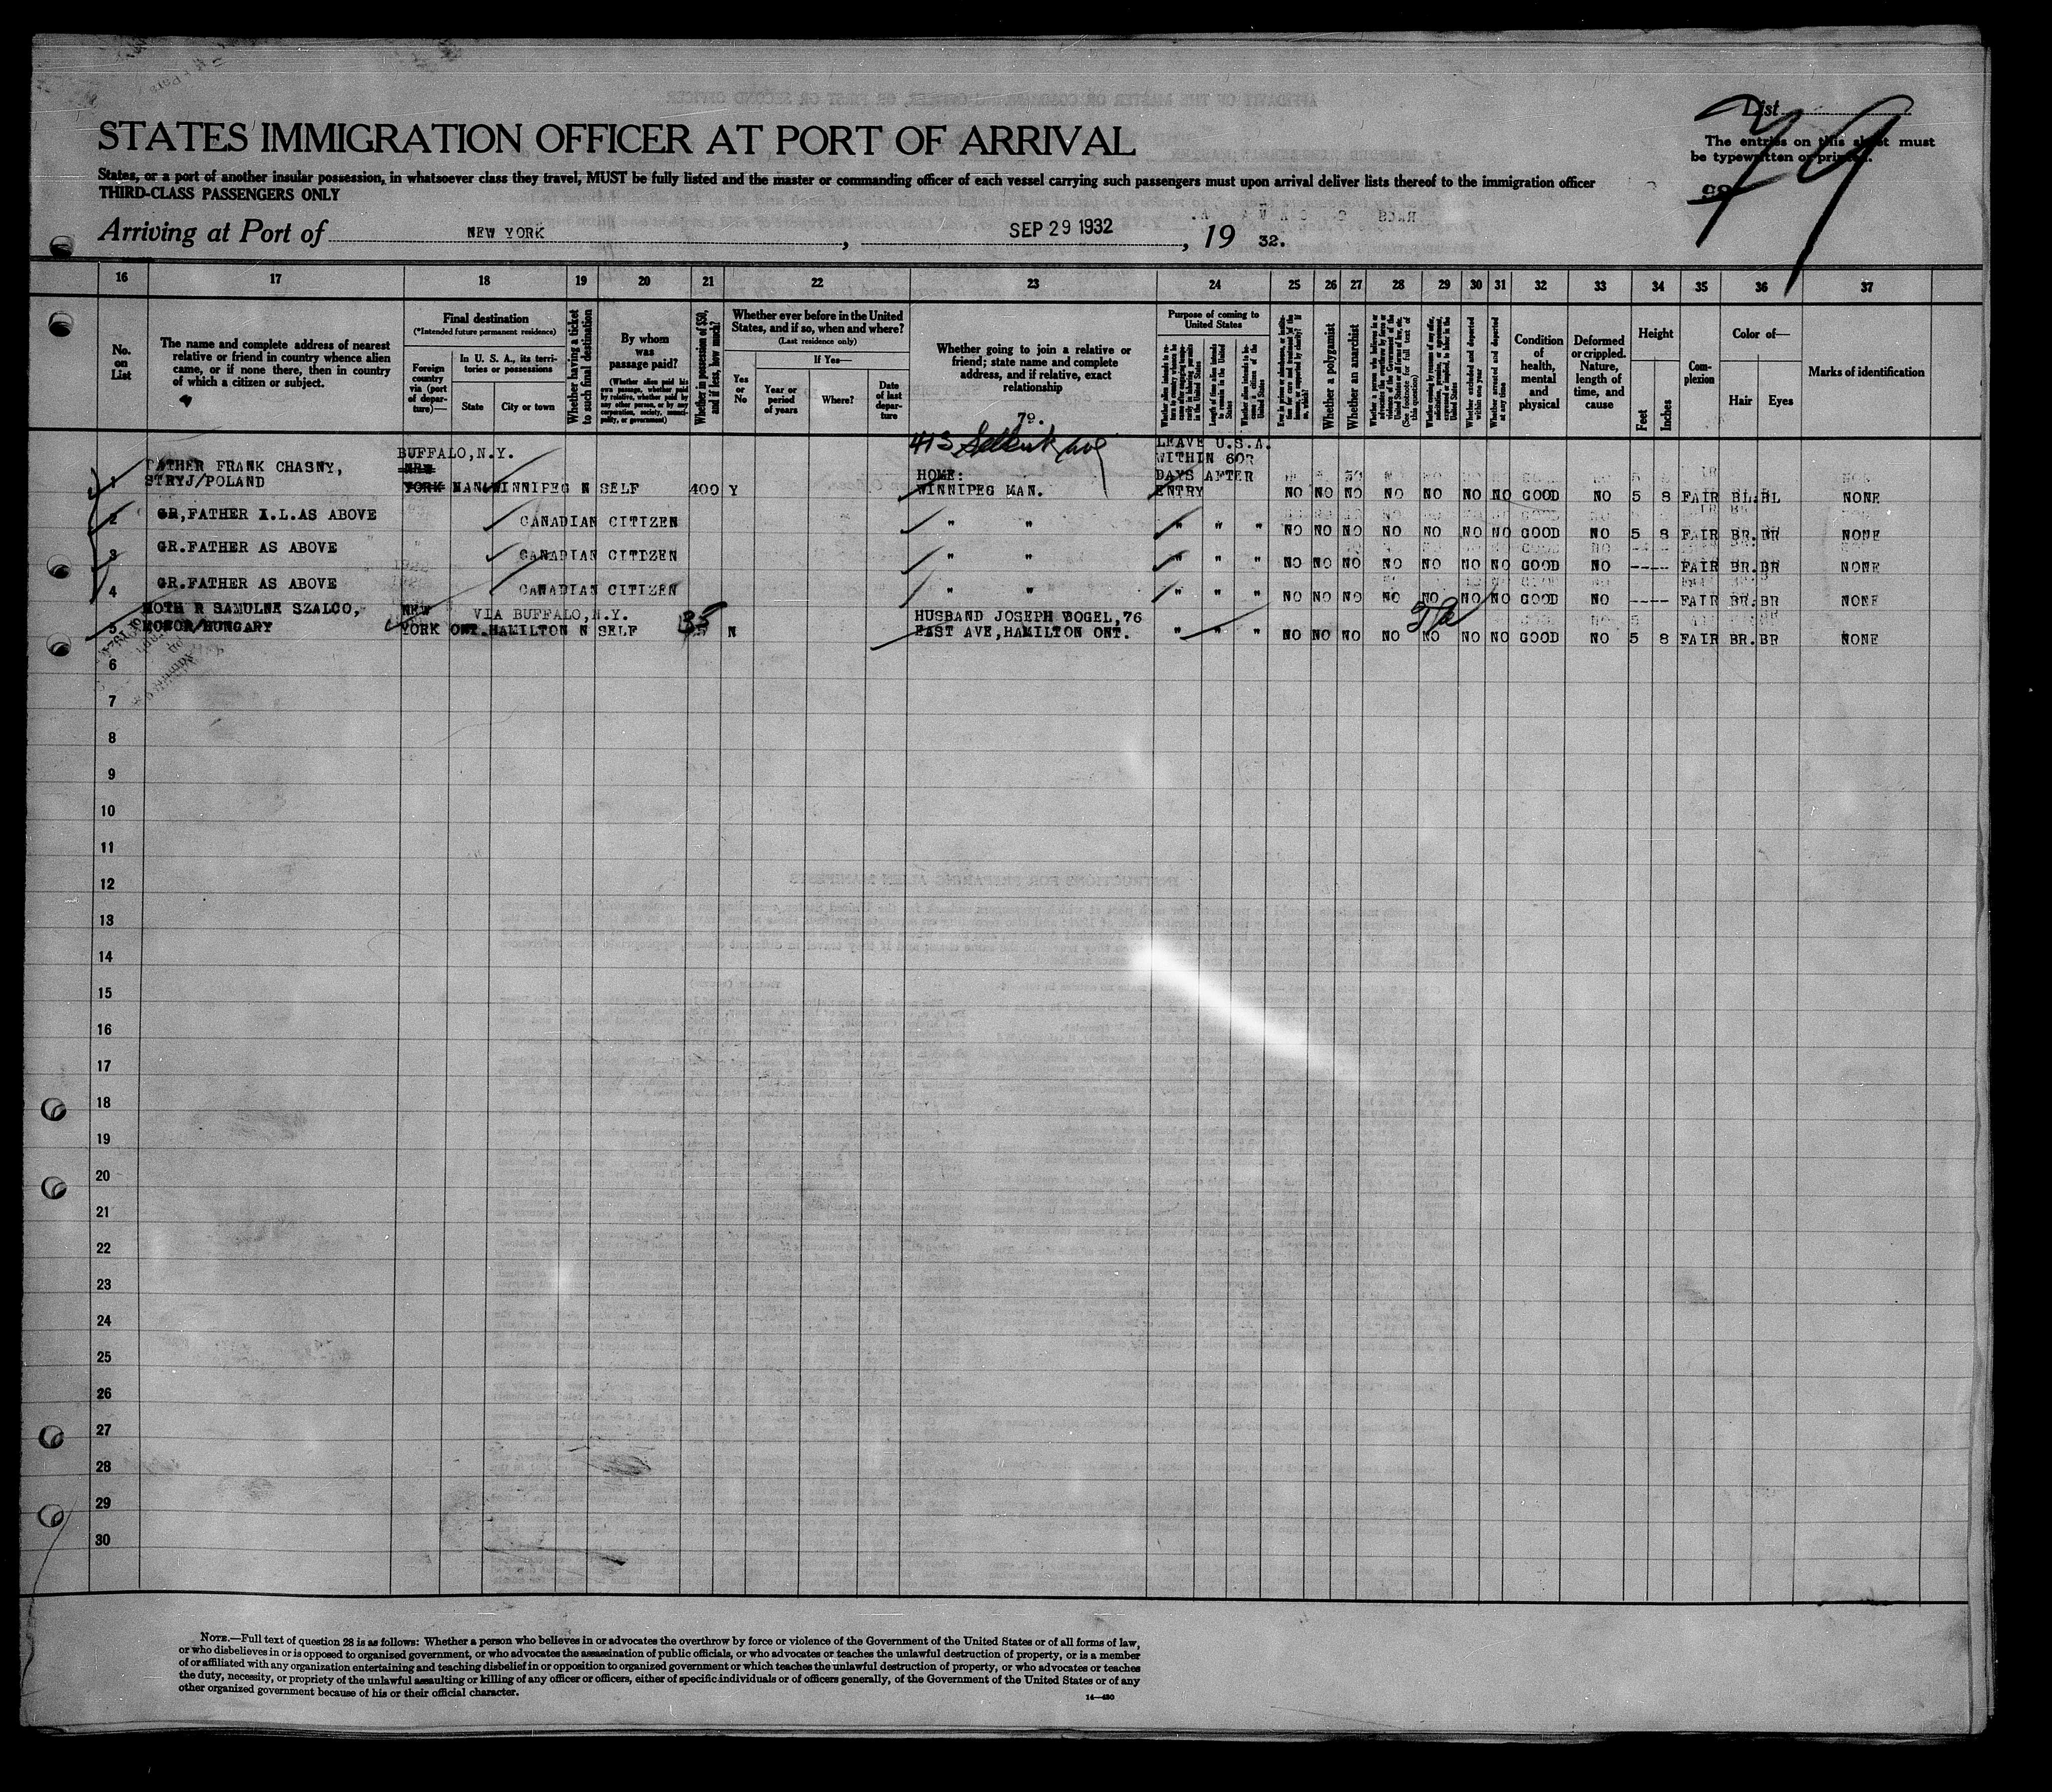 List
79
STATES IMMIGRATION OFFICER AT PORT OF ARRIVAL
The entries on this sheet must
be typewritten or printed.
States, or a port of another insular possession, in whatsoever class they travel, MUST be fully listed and the master or commanding officer of each vessel carrying such passengers must upon arrival deliver lists thereof to the immigration officer
THIRD-CLASS PASSENGERS ONLY
Arriving at Port of NEW YORK, SEP 29 1932, 19 32.
16 17 18 19 20 21 22 23 24 25 26 27 28 29 30 31 32 33 34 35 36 37
No. on List
The name and complete address of nearest relative or friend in country whence alien came, or if none there, then in country of which a citizen or subject.
Final destination
(*Intended future permanent residence)
Foreign country via (port of departure)—
In U. S. A., its territories or possessions
State
City or town
Whether having a ticket to such final destination
By whom was passage paid?
(Whether alien paid his own passage, whether paid by relative, whether paid by any other person, or by any corporation, society, municipality, or government)
Whether in possession of $50, and if less, how much?
Whether ever before in the United States, and if so, when and where?
(Last residence only)
Yes or No
If Yes—
Year or period of years
Where?
Date of last departure
Whether going to join a relative or friend; state name and complete address, and if relative, exact relationship
79.
Purpose of coming to United States
Length of time alien intends to remain in the United States
Whether alien intends to become a citizen of the United States
Whether a polygamist
Whether an anarchist
(See footnote for full text of this question)
Whether excluded and deported within one year
Whether arrested and deported at any time
Condition of health, mental and physical
Deformed or crippled. Nature, length of time, and cause
Height
Feet
Inches
Complexion
Color of—
Hair
Eyes
Marks of identification
413 Selkirk Ave
BUFFALO,N.Y. LEAVE U.S.A.
FATHER FRANK CHASNY, NEW HOME: WITHIN 60 DAYS AFTER
1 STRYJ/POLAND YORK MAN.WINNIPEG N SELF 400 Y WINNIPEG MAN. ENTRY NO NO NO NO NO NO NO GOOD NO 5 8 FAIR BL.BL NONE
2 GR,FATHER I.L.AS ABOVE CANADIAN CITIZEN " " " " " NO NO NO NO NO NO NO GOOD NO 5 8 FAIR BR.BR NONE
3 GR.FATHER AS ABOVE CANADIAN CITIZEN " " " " " NO NO NO NO NO NO NO GOOD NO ---- FAIR BR.BR NONE
4 GR.FATHER AS ABOVE CANADIAN CITIZEN " " " " " NO NO NO NO NO NO NO GOOD NO ---- FAIR BR.BR NONE
MOTH R SAMULNE SZALCO, NEW VIA BUFFALO,N.Y. 35 HUSBAND JOSEPH BOGEL,76
5 MONOR/HUNGARY YORK ONT.HAMILTON N SELF N EAST AVE,HAMILTON ONT. " " " NO NO NO NO NO NO NO GOOD NO 5 8 FAIR BR.BR NONE
6
7
8
9
10
11
12
13
14
15
16
17
18
19
20
21
22
23
24
25
26
27
28
29
30
NOTE.—Full text of question 28 is as follows: Whether a person who believes in or advocates the overthrow by force or violence of the Government of the United States or of all forms of law,
or who disbelieves in or is opposed to organized government, or who advocates the assassination of public officials, or who advocates or teaches the unlawful destruction of property, or is a member
of or affiliated with any organization entertaining and teaching disbelief in or opposition to organized government or which teaches the unlawful destruction of property, or who advocates or teaches
the duty, necessity, or propriety of the unlawful assaulting or killing of any officer or officers, either of specific individuals or of officers generally, of the Government of the United States or of any
other organized government because of his or their official character.
14—480